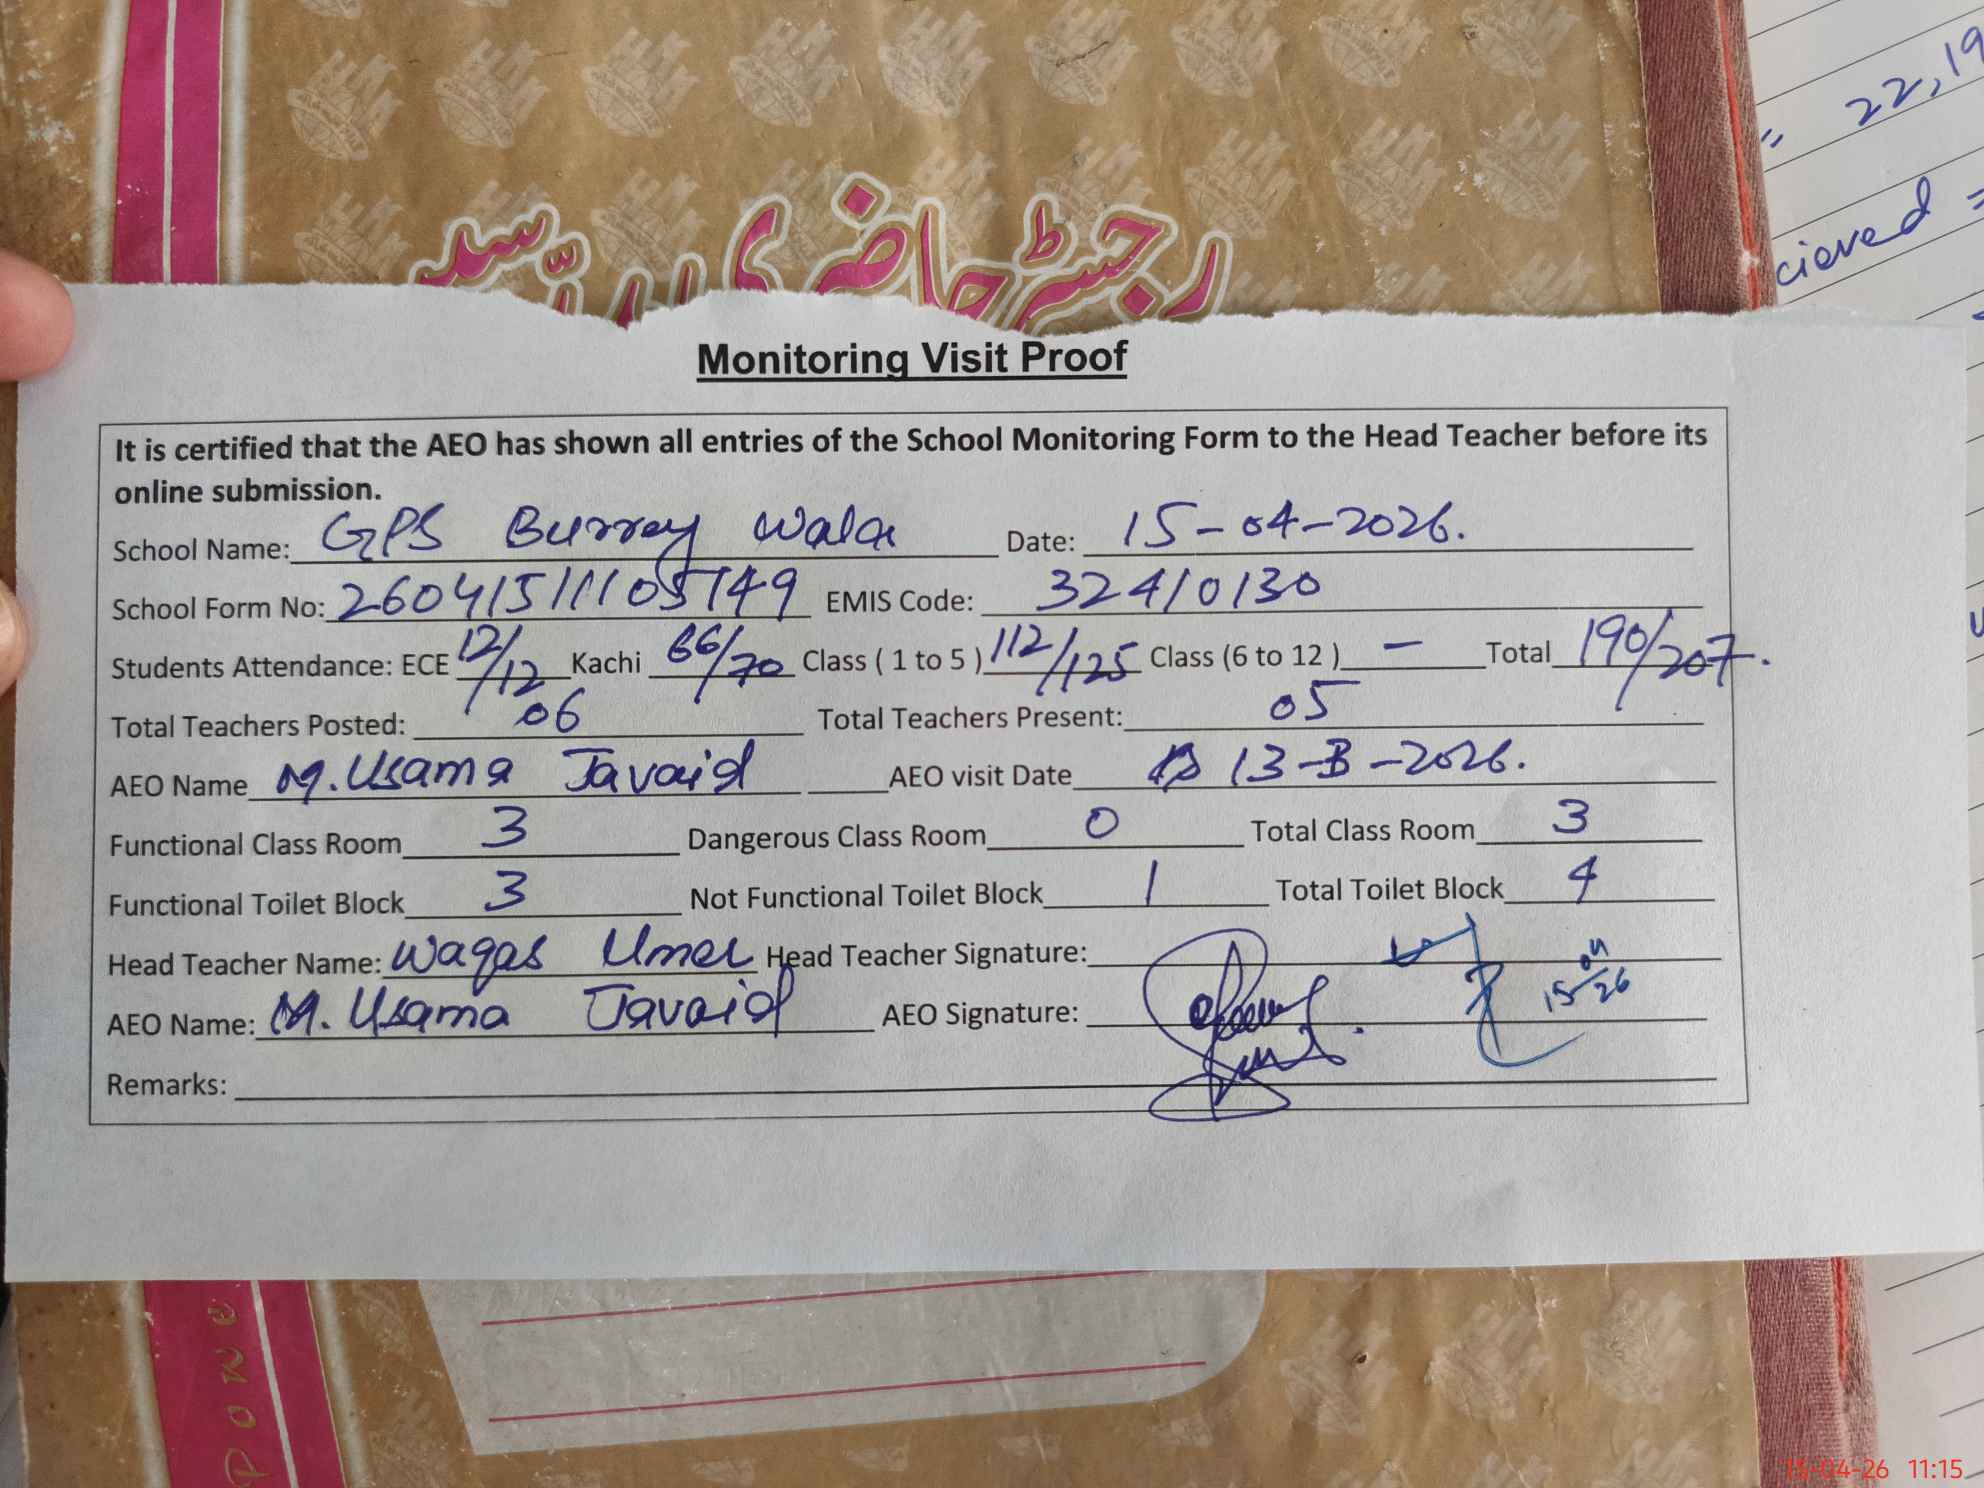 رجسٹر حاضری
22,19
cieved =
Monitoring Visit Proof
It is certified that the AEO has shown all entries of the School Monitoring Form to the Head Teacher before its
online submission.
School Name: GPS Burrey Wala Date: 15-04-2026.
School Form No: 26041511105749 EMIS Code: 32410130
Students Attendance: ECE 12/12 Kachi 66/70 Class ( 1 to 5 ) 112/125 Class (6 to 12 ) - Total 190/207.
Total Teachers Posted: 06 Total Teachers Present: 05
AEO Name M. Usama Javaid AEO visit Date 13-3-2026.
Functional Class Room 3 Dangerous Class Room 0 Total Class Room 3
Functional Toilet Block 3 Not Functional Toilet Block 1 Total Toilet Block 4
Head Teacher Name: Waqas Umer Head Teacher Signature: 15-04/26
AEO Name: M. Usama Javaid AEO Signature:
Remarks:
PONE
15-04-26 11:15